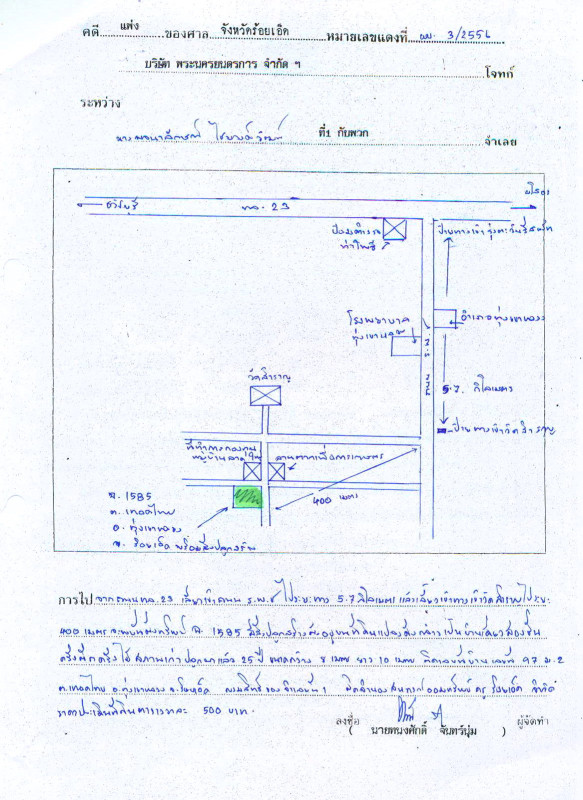 คดี แพ่ง ของศาล จังหวัดร้อยเอ็ด หมายเลขแดงที่ ผบ. 3/2556
บริษัท พระนครยนตรการ จำกัด ฯ โจทก์
ระหว่าง
นาง ที่1 กับพวก จำเลย
ธวัชบุรี ทล. 23 ยโสธร
ป้อมตำรวจ ป้ายทางเข้า
ท่าโพธิ์
โรงพยาบาล อำเภอทุ่งเขาหลวง
ทุ่งเขาหลวง ร.พ.ช.
วัดสำราญ 5.7 กิโลเมตร
ป้ายทางเข้าวัดสำราญ
ที่ทำการกองทุน ลานตากเพื่อการเกษตร
หมู่บ้าน
400 เมตร
ฉ. 1585
ต. เทอดไทย
อ. ทุ่งเขาหลวง
จ. ร้อยเอ็ด พร้อมสิ่งปลูกสร้าง
การไป จากถนนทล.23 เลี้ยวเข้าถนน ร.พ.ช ไประยะทาง 5.7 กิโลเมตร แล้วเลี้ยวเข้าทางเข้าวัดสำราญไประยะ
400 เมตร จะพบที่ตั้งทรัพย์ ฉ. 1585 มีสิ่งปลูกสร้างตั้งอยู่บนที่ดินแปลงดังกล่าว เป็นบ้านเดี่ยวสองชั้น
ครึ่งตึกครึ่งไม้ สภาพเก่า ปลูกมาแล้ว 25 ปี ขนาดกว้าง 8 เมตร ยาว 10 เมตร ติดเลขที่บ้าน เลขที่ 97 ม.2
ต.เทอดไทย อ.ทุ่งเขาหลวง จ.ร้อยเอ็ด กรรมสิทธิ์ของจำเลยที่ 1 ติดจำนอง สหกรณ์ออมทรัพย์ครู ร้อยเอ็ด จำกัด
ราคาประเมินที่ดินตารางวาละ 500 บาท
ลงชื่อ ผู้จัดทำ
( นายทนงศักดิ์ จันทร์นุ่ม )